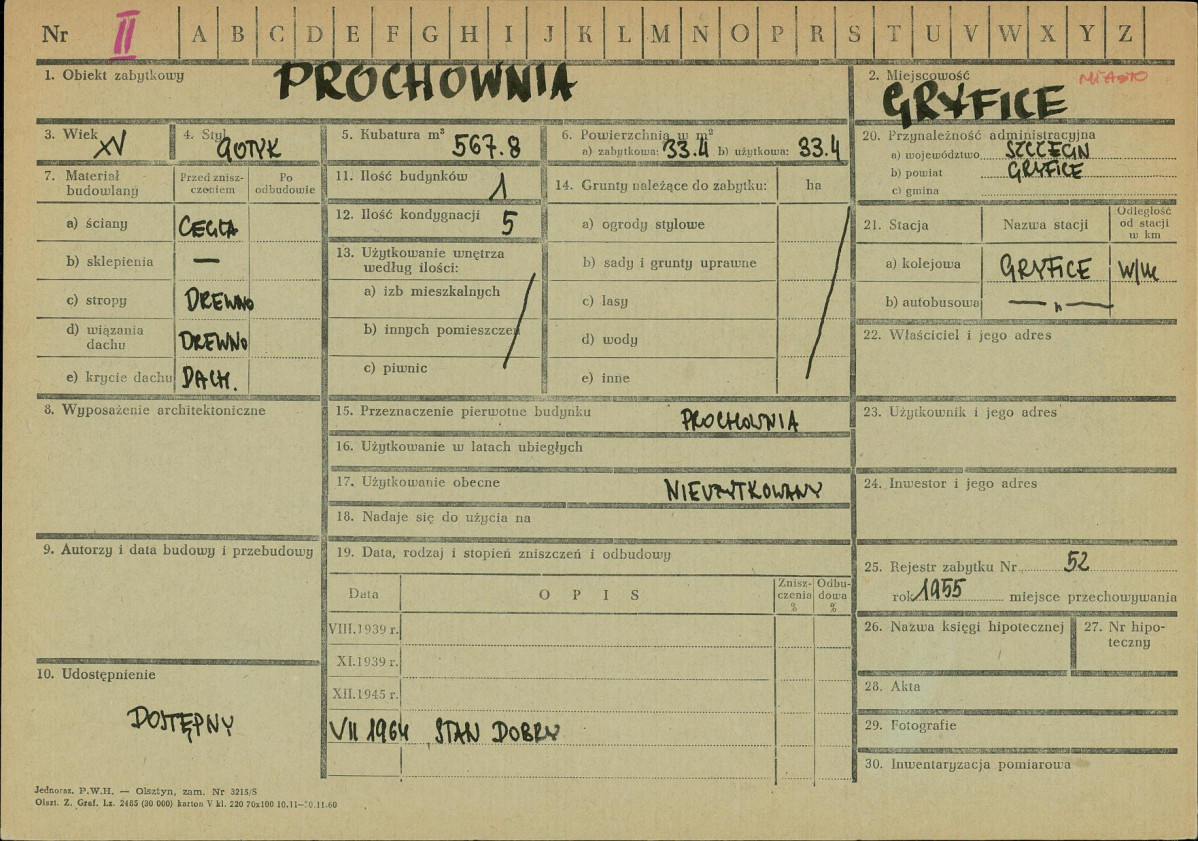 Nr II A B C D E F G H I J K L M N O P R S T U V W X Y Z
1. Obiekt zabytkowy PROCHOWNIA
2. Miejscowość MIASTO
GRYFICE
3. Wiek XV
4. Styl GOTYK
5. Kubatura m³ 567.8
6. Powierzchnia w m²
a) zabytkowa: 33.4 b) użytkowa: 33.4
7. Materiał budowlany
Przed znisz-
czeniem
Po
odbudowie
a) ściany CEGŁA
b) sklepienia —
c) stropy DREWNO
d) wiązania
dachu DREWNO
e) krycie dachu DACH.
8. Wyposażenie architektoniczne
9. Autorzy i data budowy i przebudowy
10. Udostępnienie
DOSTĘPNY
11. Ilość budynków 1
12. Ilość kondygnacji 5
13. Użytkowanie wnętrza
według ilości:
a) izb mieszkalnych
b) innych pomieszczeń
c) piwnic
14. Grunty należące do zabytku: ha
a) ogrody stylowe
b) sady i grunty uprawne
c) lasy
d) wody
e) inne
15. Przeznaczenie pierwotne budynku PROCHOWNIA
16. Użytkowanie w latach ubiegłych
17. Użytkowanie obecne NIEUŻYTKOWANY
18. Nadaje się do użycia na
19. Data, rodzaj i stopień zniszczeń i odbudowy
Data OPIS
Znisz-
czenia
%
Odbu-
dowa
%
VIII.1939 r.
XI.1939 r.
XII.1945 r.
VII 1964 STAN DOBRY
20. Przynależność administracyjna
a) województwo SZCZECIN
b) powiat GRYFICE
c) gmina
21. Stacja Nazwa stacji
Odległość
od stacji
w km
a) kolejowa GRYFICE W/M
b) autobusowa — „ —
22. Właściciel i jego adres
23. Użytkownik i jego adres
24. Inwestor i jego adres
25. Rejestr zabytku Nr 52
rok 1955 miejsce przechowywania
26. Nazwa księgi hipotecznej
27. Nr hipo-
teczny
28. Akta
29. Fotografie
30. Inwentaryzacja pomiarowa
Jednoraz. P.W.H. — Olsztyn, zam. Nr 3215/S
Olszt. Z. Graf. Lz. 2485 (30 000) karton V kl. 220 70x100 10.11—10.11.60